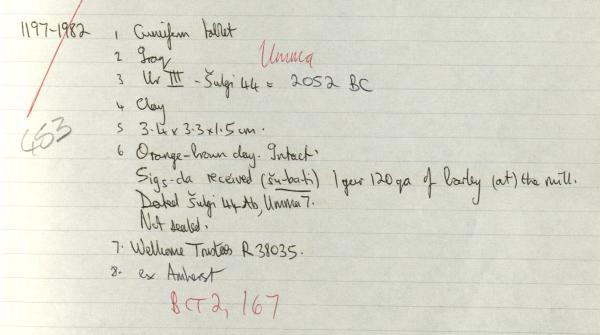 1197-1982 1 Cuneiform tablet
2 Iraq Umma
3 Ur III - Šulgi 44 = 2052 BC
4 Clay
5 3.4 x 3.3 x 1.5 cm.
6 Orange-brown clay. Intact.
received (šu-bati) 1 gur 120 qa of barley (at) the mill.
Dated Šulgi 44 Ab, Umma 7.
Not sealed.
7. Wellcome Trustees R 38035.
8. ex Amherst
453
BCT 2, 167